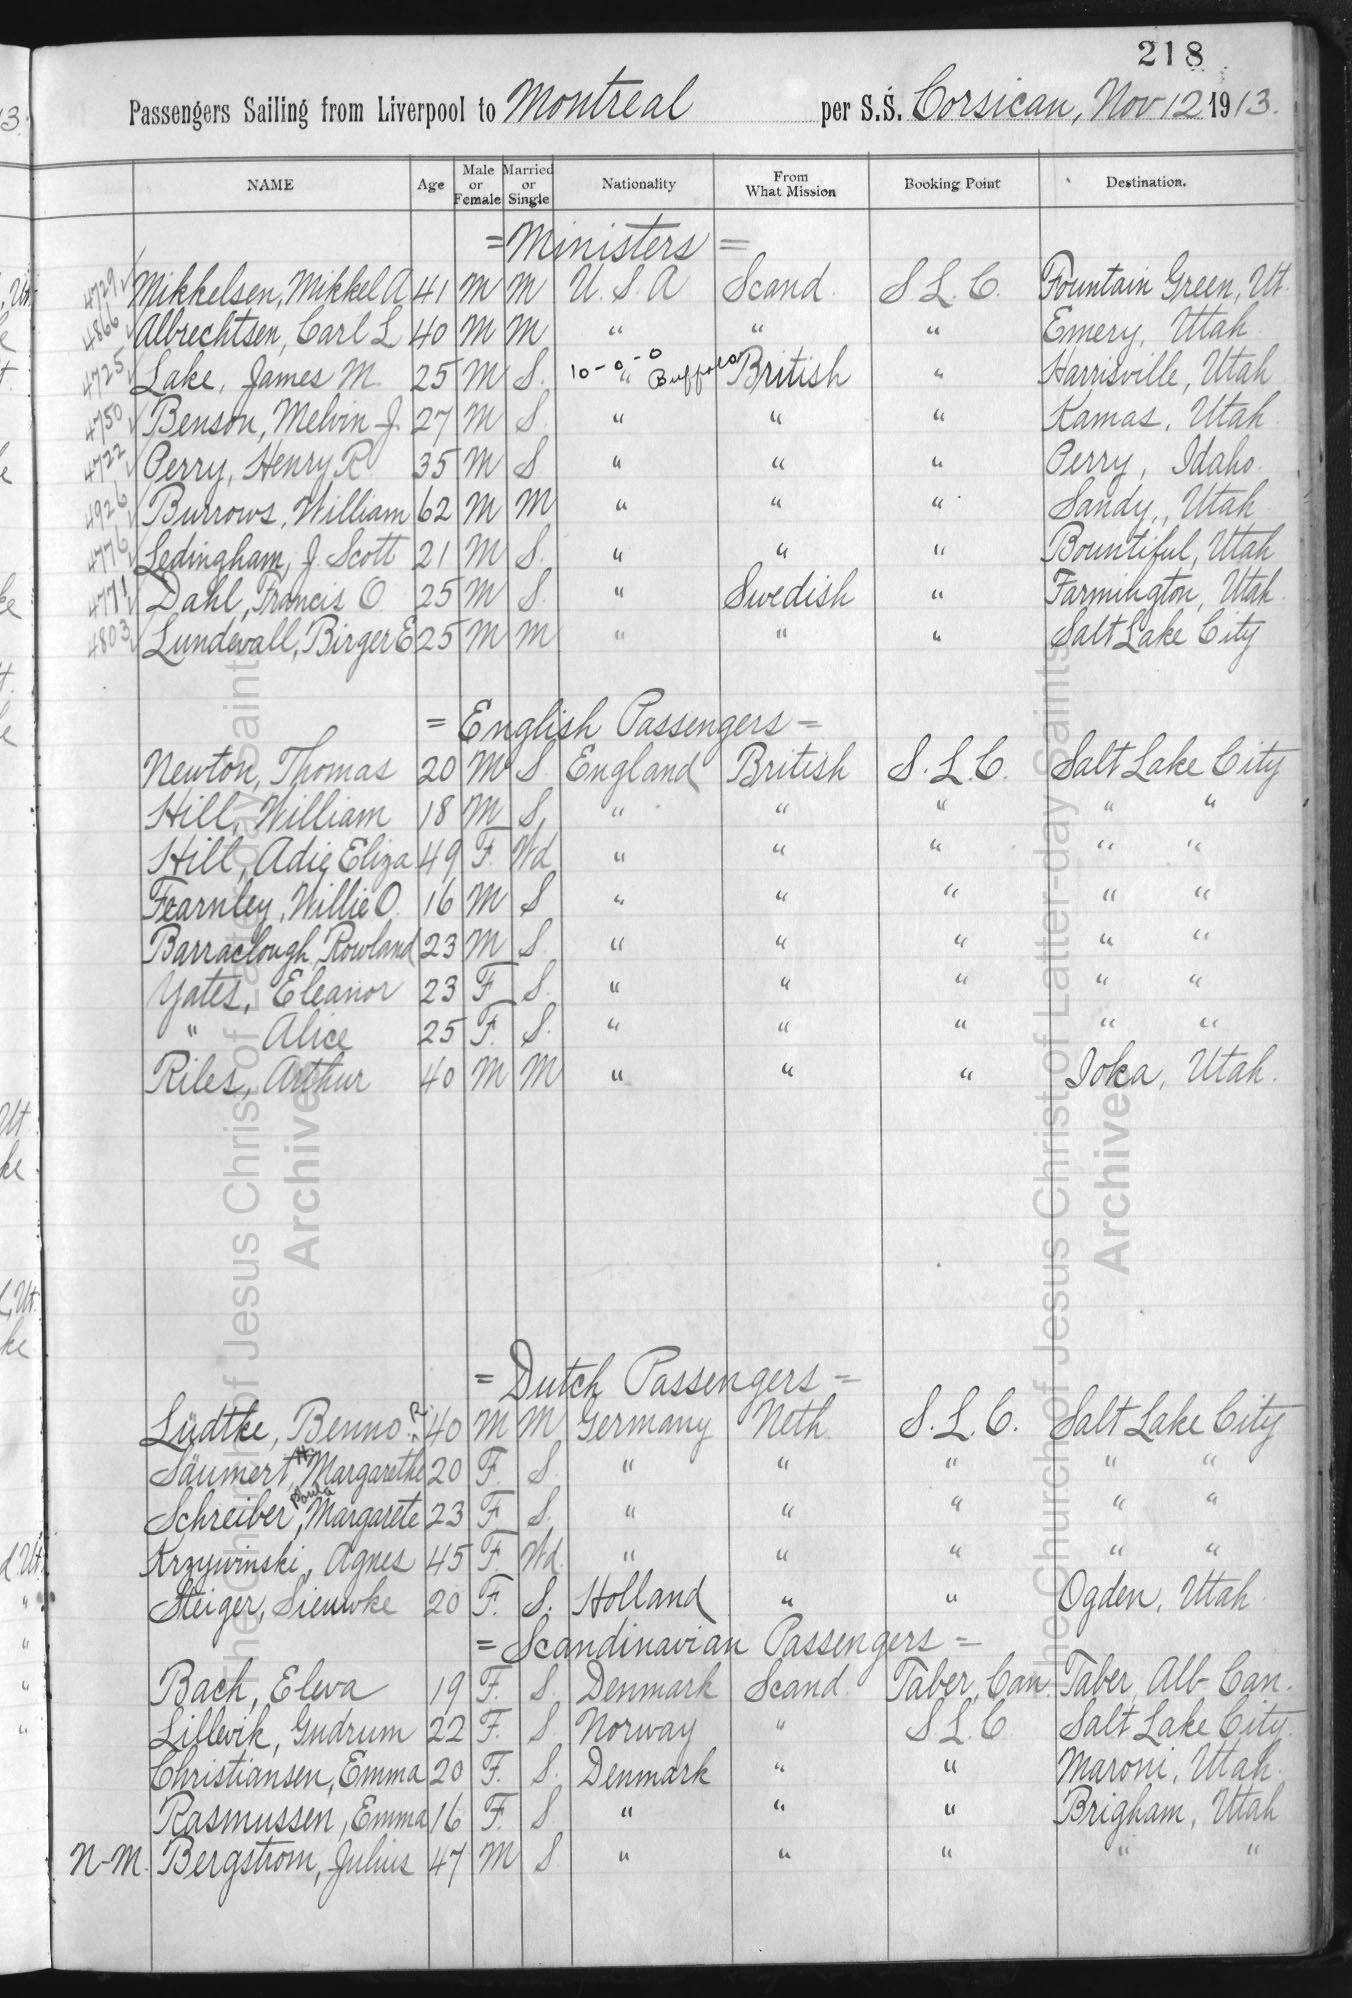 218
Passengers Sailing from Liverpool to Montreal per S.S. Corsican, Nov 12 1913.
NAME Age Male or Female Married or Single Nationality From What Mission Booking Point Destination.
= Ministers =
4729 Mikkelsen, Mikkel A 41 M M U. S. A Scand. S. L. C. Fountain Green, Ut.
4866 Albrechtsen, Carl L 40 M M " " " Emery, Utah
4725 Lake, James M. 25 M S. 10-0-0 " Buffalo British " Harrisville, Utah
4750 Benson, Melvin J. 27 M S. " " " Kamas, Utah
4722 Perry, Henry R 35 M S " " " Perry, Idaho.
4926 Burrows, William 62 M M " " " Sandy, Utah
4776 Ledingham, J. Scott 21 M S. " " " Bountiful, Utah
4771 Dahl, Francis O 25 M S. " Swedish " Farmington, Utah.
4803 Lundevall, Birger E 25 M M " " " Salt Lake City
= English Passengers =
Newton, Thomas 20 M S. England British S. L. C. Salt Lake City
Hill, William 18 M S. " " " " "
Hill, Adie Eliza 49 F. Wd " " " " "
Fearnley, Willie O. 16 M S " " " " "
Barraclough, Rowland 23 M S. " " " " "
Yates, Eleanor 23 F S. " " " " "
" Alice 25 F. S. " " " " "
Riles, Arthur 40 M M " " " Ioka, Utah.
= Dutch Passengers =
Lüdtke, Benno R. 40 M M Germany Neth. S. L. C. Salt Lake City
Säumert, H. Margarethe 20 F. S. " " " " "
Schreiber, Paula Margarete 23 F S. " " " " "
Krzywinski, Agnes 45 F. Wd. " " " " "
Steiger, Sieuwke 20 F. S. Holland " " Ogden, Utah
= Scandinavian Passengers =
Bach, Elva 19 F. S. Denmark Scand. Taber, Can. Taber, Alb- Can.
Lillevik, Gudrum 22 F. S. Norway " S L C Salt Lake City.
Christiansen, Emma 20 F. S. Denmark " " Maroni, Utah.
Rasmussen, Emma 16 F. S " " " Brigham, Utah
N-M. Bergstrom, Julius 47 M S. " " " " "
The Church of Jesus Christ of Latter-day Saints
Archive
The Church of Jesus Christ of Latter-day Saints
Archive